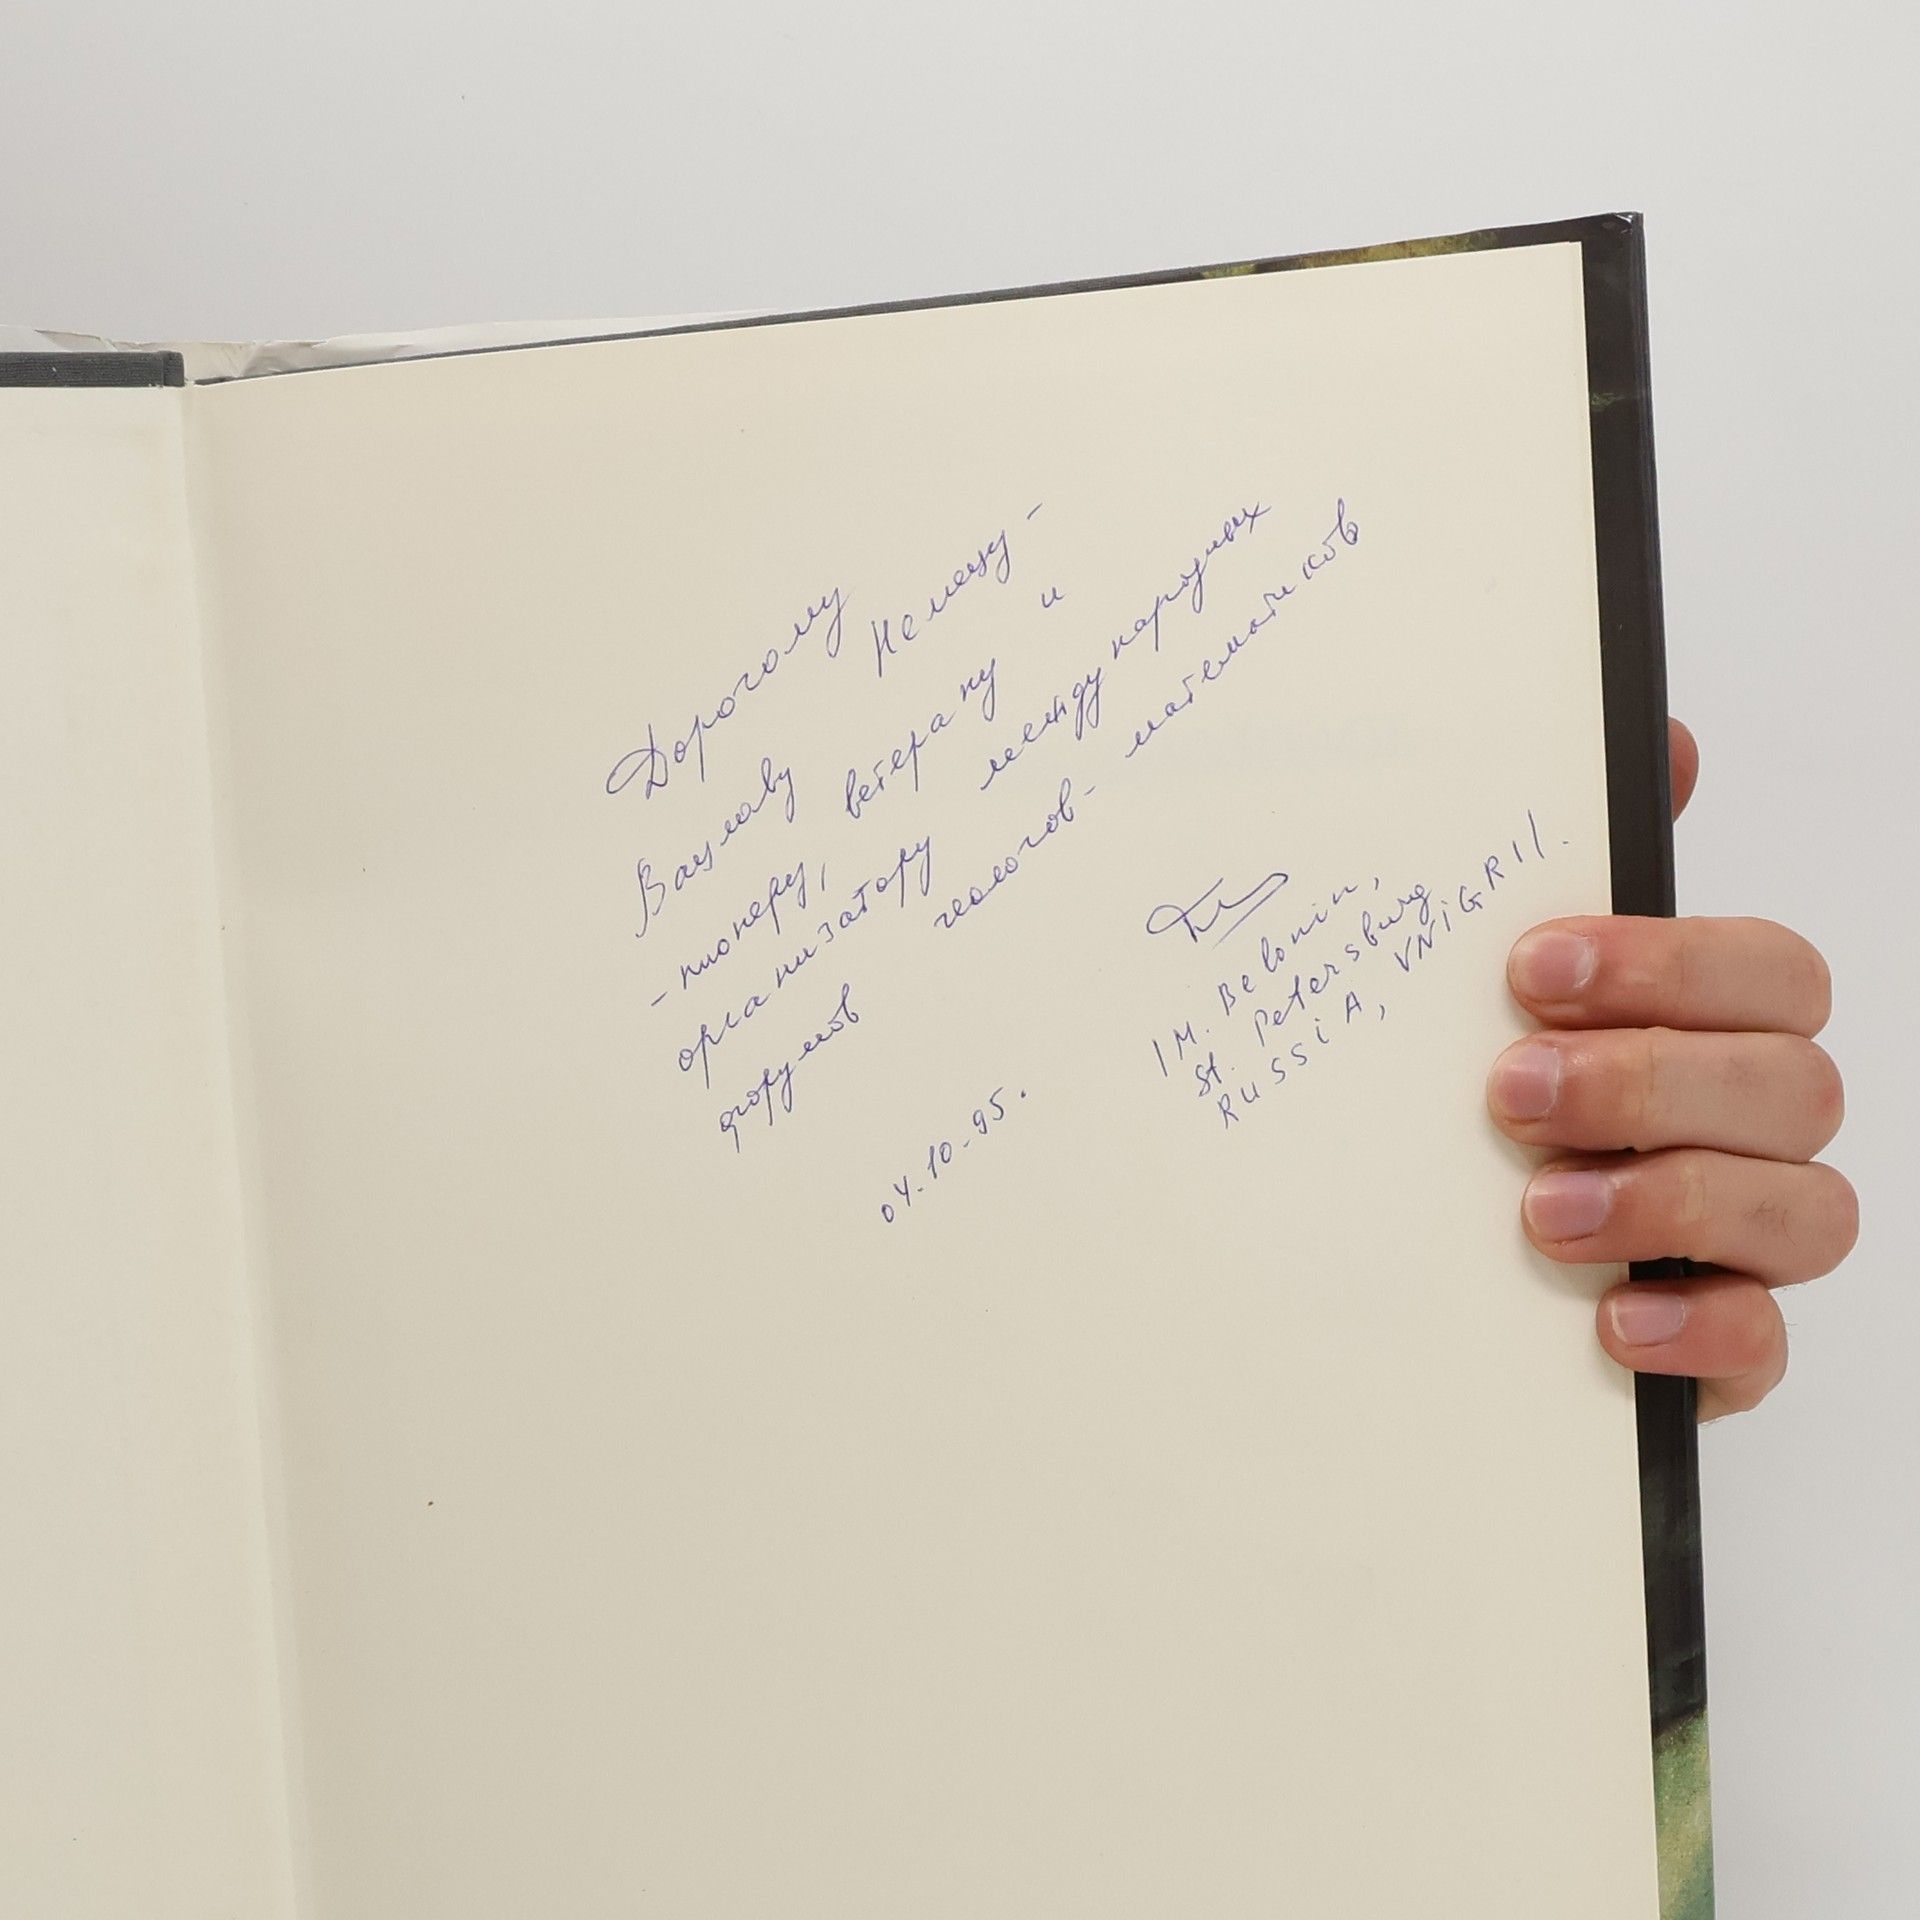 Дорогому
Вацлаву Немецу -
- пионеру, ветерану и
организатору международных
форумов геологов- математиков
/ M. Belonin,
St. Petersburg
RUSSiA, VNiGRI/.
04.10-95.